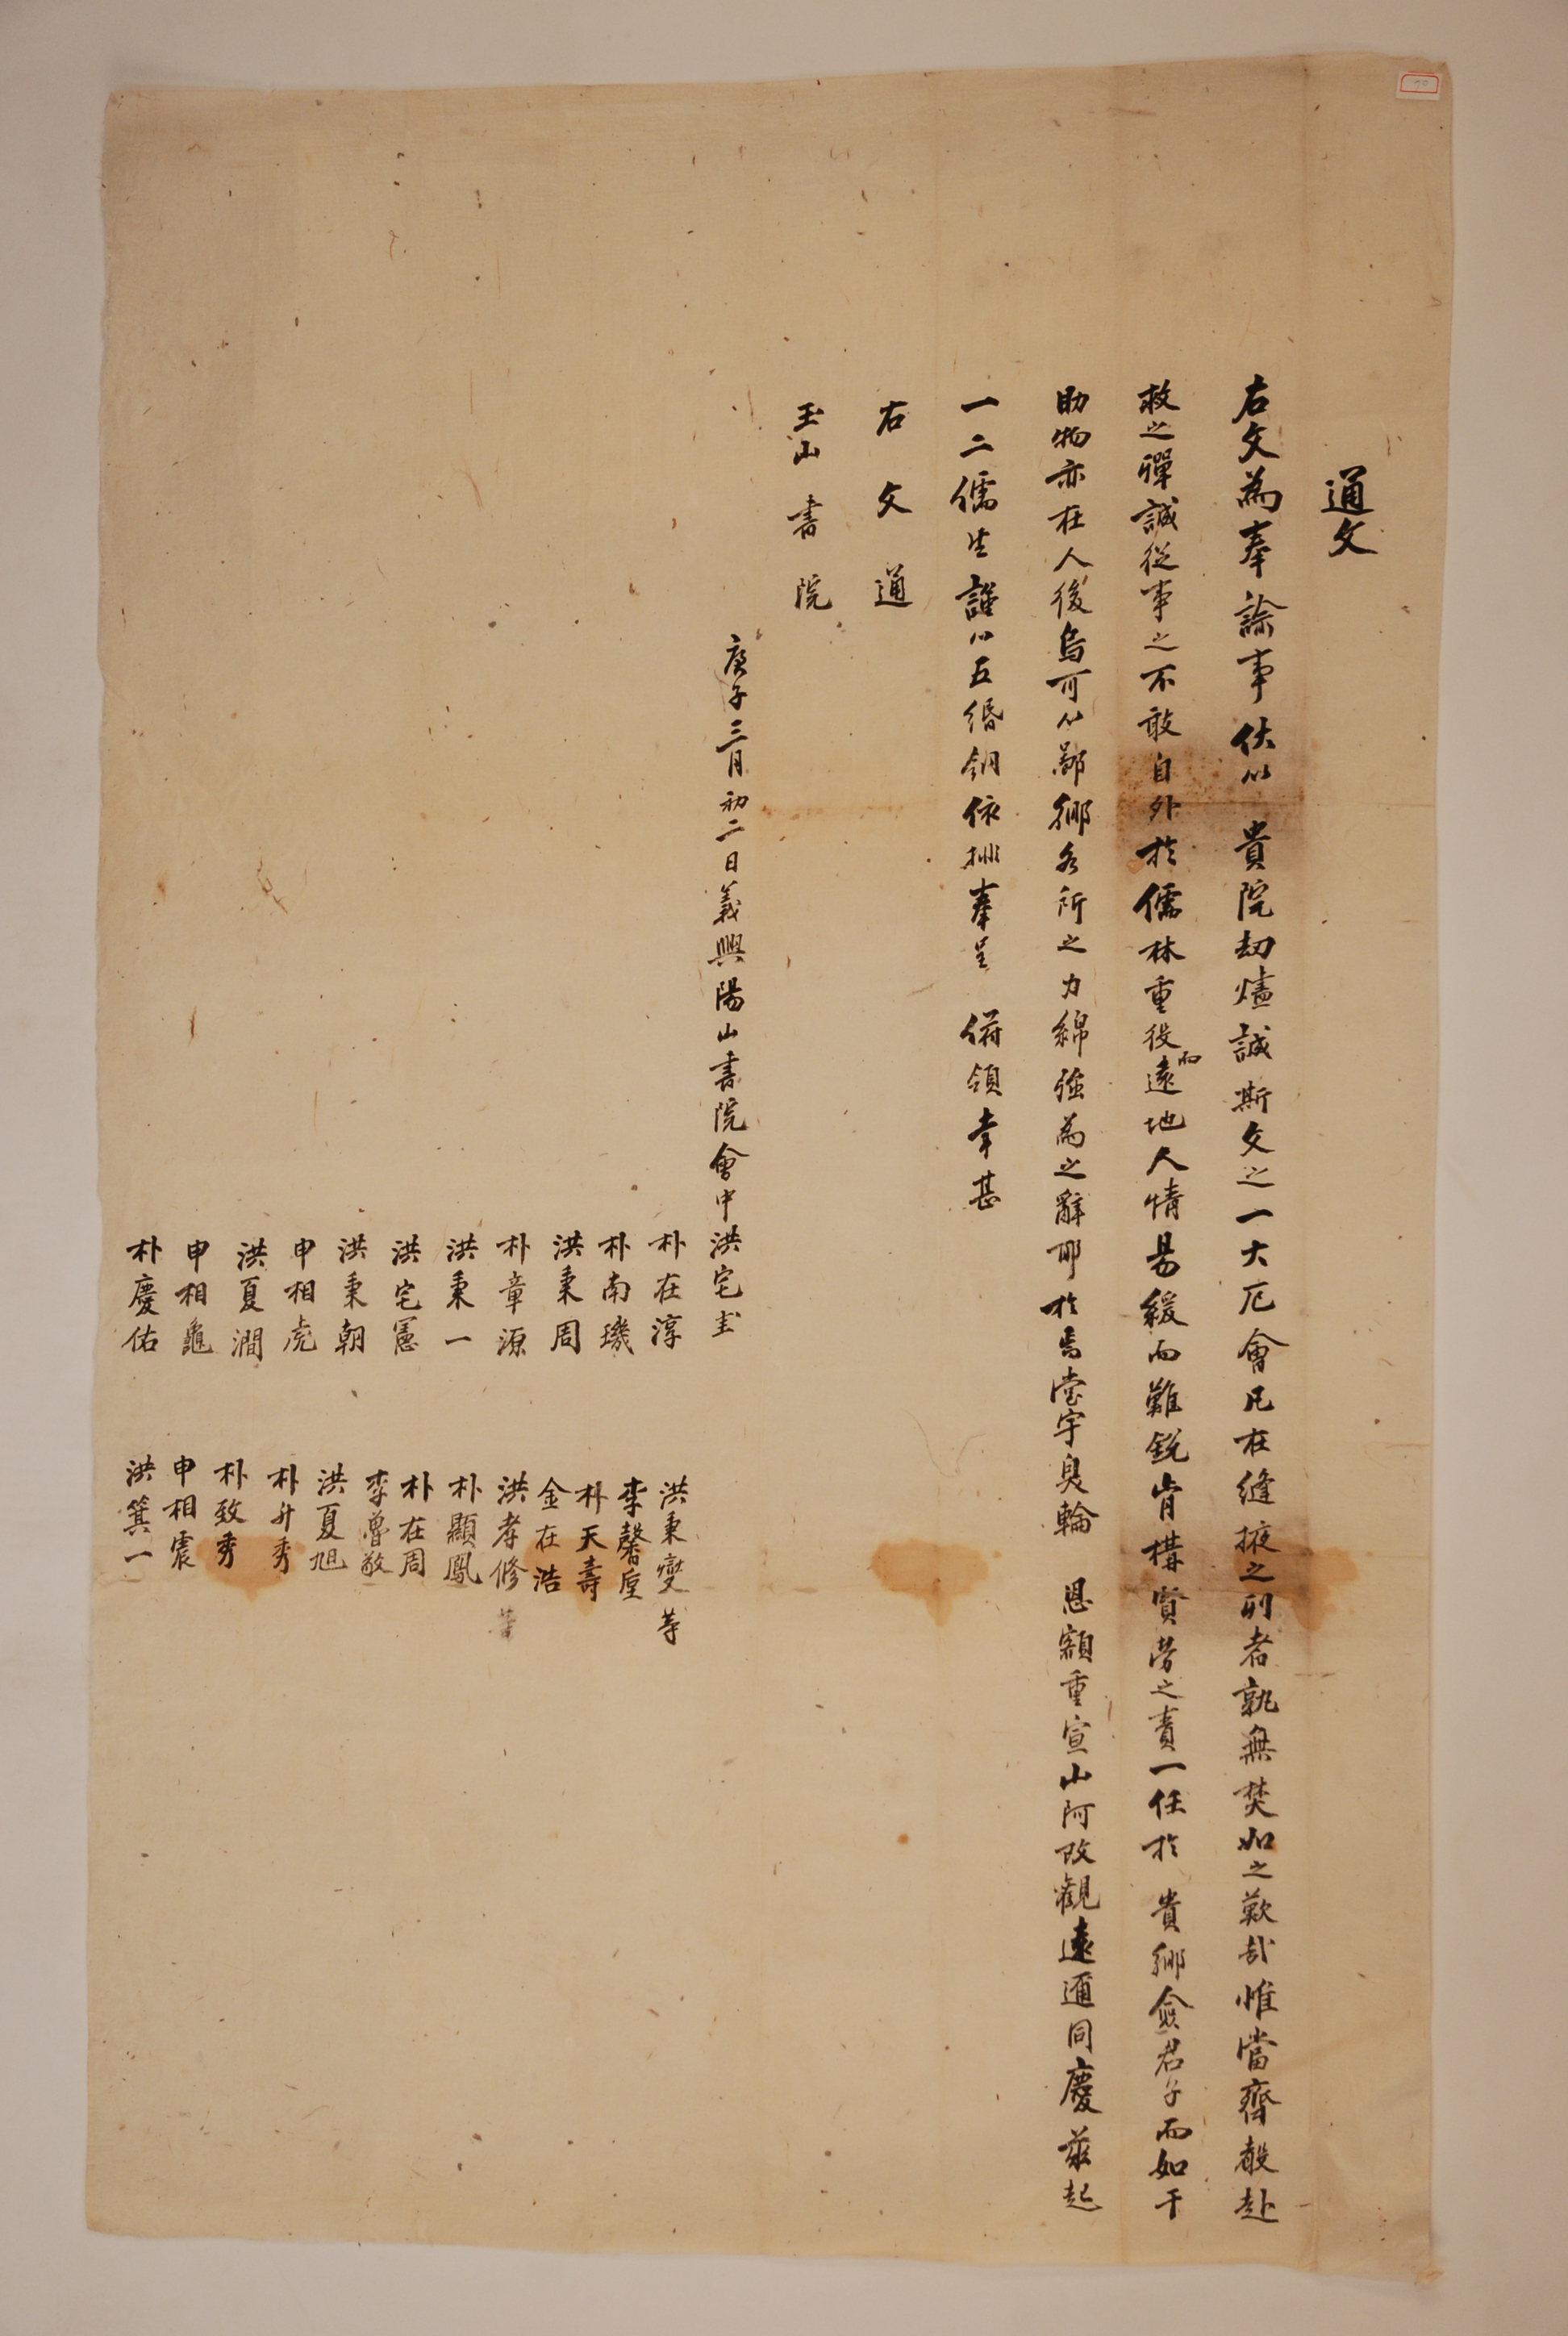 通文
右文爲奉諭事伏以 貴院劫燼誠斯文之一大厄會凡在縫掖之列者孰無焚如之歎哉惟當齊聲赴
救之殫誠從事之不敢自外於儒林重役而遠地人情易緩而難銳肯構賢勞之責一任於 貴鄕僉君子而如干
助物亦在人後烏可以鄙鄕各所之力綿強爲之辭耶於焉堂宇奐輪 恩額重宣山阿改觀遠邇同慶玆起
一二儒生謹以五緡銅依排奉呈 俯領幸甚
右文通
玉山書院
庚子三月初二日義興陽山書院會中洪宅圭
朴在淳
朴南璣
洪秉周
朴章源
洪秉一
洪宅憲
洪秉朝
申相虎
洪夏澗
申相龜
朴慶佑
洪秉燮等
李馨垕
朴天壽
金在浩
洪孝修
朴顯鳳
朴在周
李曾敬
洪夏旭
朴升秀
朴致秀
申相震
洪箕一